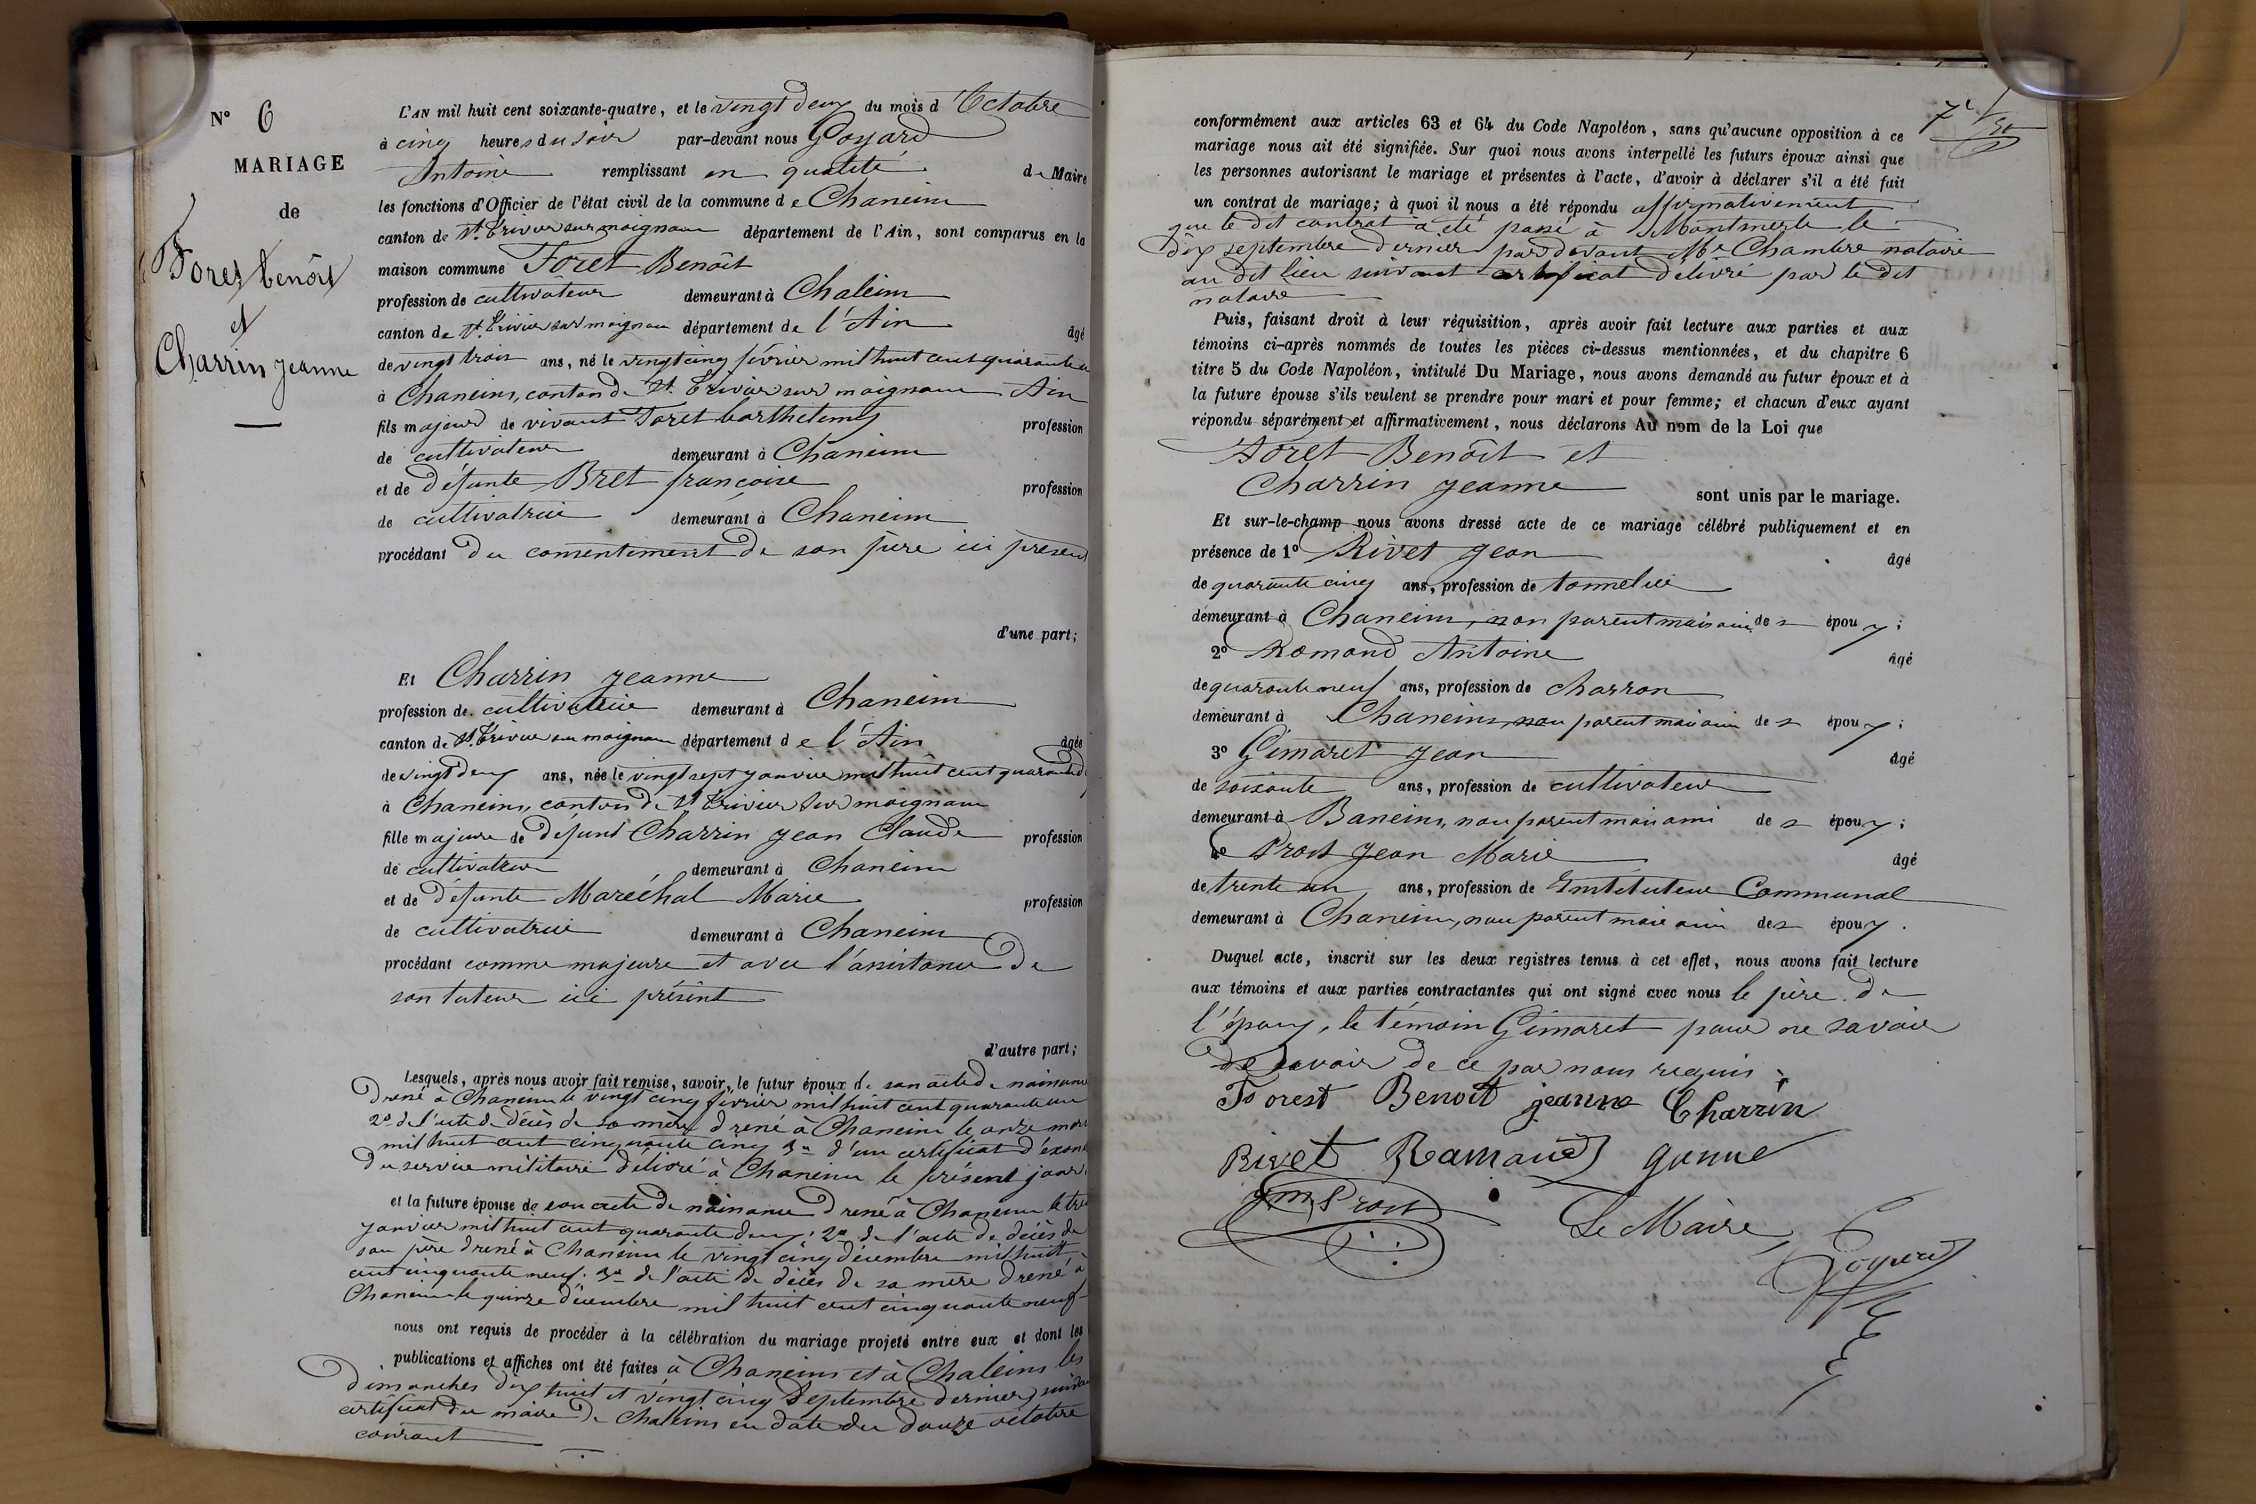 N° 6
MARIAGE
de
Foret Benoît
et
Charrin Jeanne
L'AN mil huit cent soixante-quatre, et le vingt deux du mois d'Octobre
à cinq heures du soir par-devant nous Goyard
Antoine remplissant en qualité de Maire
les fonctions d'Officier de l'état civil de la commune de Chaneins
canton de St. Trivier sur moignans département de l'Ain, sont comparus en la
maison commune Foret Benoît
profession de cultivateur demeurant à Chaleins
canton de St. Trivier sur moignans département de l'Ain âgé
de vingt trois ans, né le vingt cinq février mil huit cent quarante un
à Chaneins, canton de St. Trivier sur moignans Ain
fils majeur de vivant Foret barthelemy profession
de cultivateur demeurant à Chaneins
et de défunte Bret françoise profession
de cultivatrice demeurant à Chaneins
procédant du consentement de son père ici présent
d'une part;
Et Charrin Jeanne
profession de cultivatrice demeurant à Chaneins
canton de St. Trivier sur moignans département de l'Ain âgée
de vingt deux ans, née le vingt sept janvier mil huit cent quarante
à Chaneins, canton de St. Trivier sur moignans
fille majeure de défunt Charrin Jean Claude profession
de cultivateur demeurant à Chaneins
et de défunte Maréchal Marie profession
de cultivatrice demeurant à Chaneins
procédant comme majeure et avec l'assistance de
son tuteur ici présent
d'autre part;
Lesquels, après nous avoir fait remise, savoir, le futur époux de son acte de naissance
dressé à Chaneins le vingt cinq février mil huit cent quarante un
2° de l'acte de décès de sa mère dressé à Chaneins le onze mars
mil huit cent cinquante cinq 3° d'un certificat d'exon
du service militaire délivré à Chaneins le présent jour
et la future épouse de son acte de naissance dressé à Chaneins le
janvier mil huit cent quarante deux; 2° de l'acte de décès de
son père dressé à Chaneins le vingt cinq décembre mil huit
cent cinquante neuf. 3° de l'acte de décès de sa mère dressé à
Chaneins le quinze décembre mil huit cent cinquante neuf
nous ont requis de procéder à la célébration du mariage projeté entre eux et dont les
publications et affiches ont été faites à Chaneins et à Chaleins les
dimanches dix huit et vingt cinq Septembre dernier, suivant
certificat du maire de Chaleins en date du douze octobre
courant
7e
conformément aux articles 63 et 64 du Code Napoléon, sans qu'aucune opposition à ce
mariage nous ait été signifiée. Sur quoi nous avons interpellé les futurs époux ainsi que
les personnes autorisant le mariage et présentes à l'acte, d'avoir à déclarer s'il a été fait
un contrat de mariage; à quoi il nous a été répondu affirmativement
que le dit contrat a été passé à Montmerle le
dix septembre dernier par devant Me Chambre notaire
au dit lieu suivant certificat délivré par le dit
notaire
Puis, faisant droit à leur réquisition, après avoir fait lecture aux parties et aux
témoins ci-après nommés de toutes les pièces ci-dessus mentionnées, et du chapitre 6
titre 5 du Code Napoléon, intitulé Du Mariage, nous avons demandé au futur époux et à
la future épouse s'ils veulent se prendre pour mari et pour femme; et chacun d'eux ayant
répondu séparément et affirmativement, nous déclarons Au nom de la Loi que
Foret Benoît et
Charrin Jeanne sont unis par le mariage.
Et sur-le-champ nous avons dressé acte de ce mariage célébré publiquement et en
présence de 1° Rivet Jean âgé
de quarante cinq ans, profession de tonnelier
demeurant à Chaneins, non parent mais ami des époux;
2° Romand Antoine âgé
de quarante neuf ans, profession de charron
demeurant à Chaneins, non parent mais ami des époux;
3° Gimaret Jean âgé
de soixante ans, profession de cultivateur
demeurant à Baneins, non parent mais ami des époux;
4° Prost Jean Marie âgé
de trente un ans, profession de Instituteur Communal
demeurant à Chaneins, non parent mais ami des époux.
Duquel acte, inscrit sur les deux registres tenus à cet effet, nous avons fait lecture
aux témoins et aux parties contractantes qui ont signé avec nous le père de
l'époux, le témoin Gimaret pour ne savoir
de savoir de ce par nous requis
Forest Benoit jeanne Charrin
Rivet Ramand
jm Prost
Le Maire,
Goyard